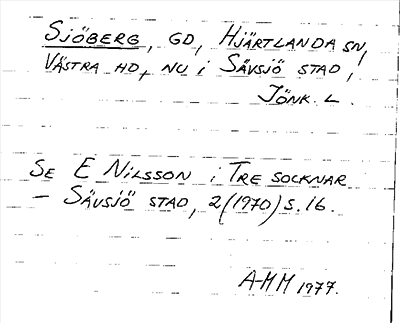 SJÖBERG, GD, HJÄRTLANDA SN,
VÄSTRA HD, NU i SÄVSJÖ STAD,
JÖNK. L.
SE E NILSSON i TRE SOCKNAR
– SÄVSJÖ STAD, 2(1970) S. 16.
A-MM 1977.